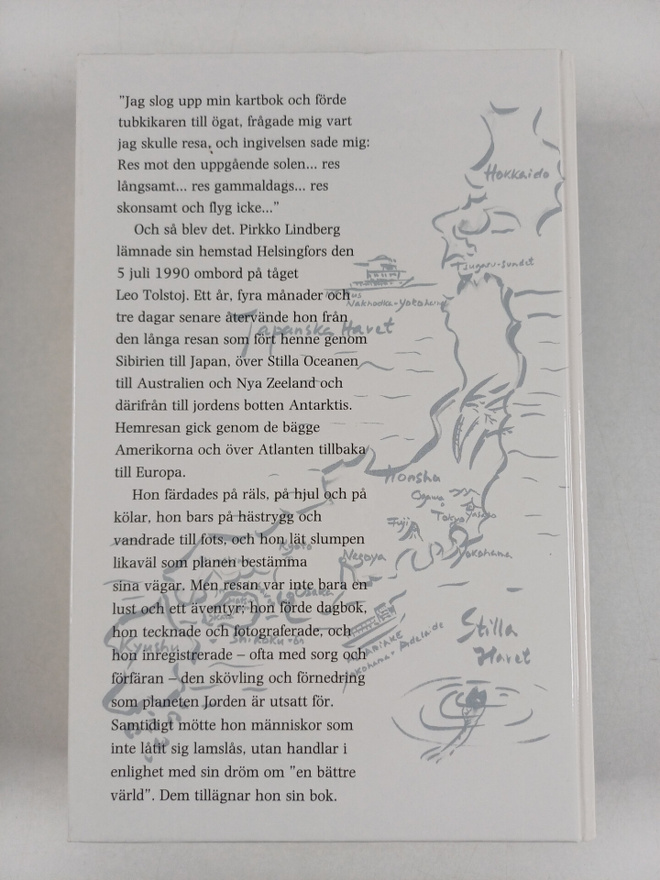 "Jag slog upp min kartbok och förde
tubkikaren till ögat, frågade mig vart
jag skulle resa, och ingivelsen sade mig:
Res mot den uppgående solen... res
långsamt... res gammaldags... res
skonsamt och flyg icke..."
Och så blev det. Pirkko Lindberg
lämnade sin hemstad Helsingfors den
5 juli 1990 ombord på tåget
Leo Tolstoj. Ett år, fyra månader och
tre dagar senare återvände hon från
den långa resan som fört henne genom
Sibirien till Japan, över Stilla Oceanen
till Australien och Nya Zeeland och
därifrån till jordens botten Antarktis.
Hemresan gick genom de bägge
Amerikorna och över Atlanten tillbaka
till Europa.
Hon färdades på räls, på hjul och på
kölar, hon bars på hästrygg och
vandrade till fots, och hon lät slumpen
likaväl som planen bestämma
sina vägar. Men resan var inte bara en
lust och ett äventyr; hon förde dagbok,
hon tecknade och fotograferade, och
hon inregistrerade – ofta med sorg och
förfäran – den skövling och förnedring
som planeten Jorden är utsatt för.
Samtidigt mötte hon människor som
inte låtit sig lamslås, utan handlar i
enlighet med sin dröm om "en bättre
värld". Dem tillägnar hon sin bok.
Hokkaido
Tsugaru-sundet
Nakhodka-Yokohama
Japanska Havet
Honshu
Ogawa
Fuji
Tokyo
Yokohama
Kyoto
Nagoya
Osaka
Shikoku
Kyushu
Yokohama - Adelaide
Stilla
Havet